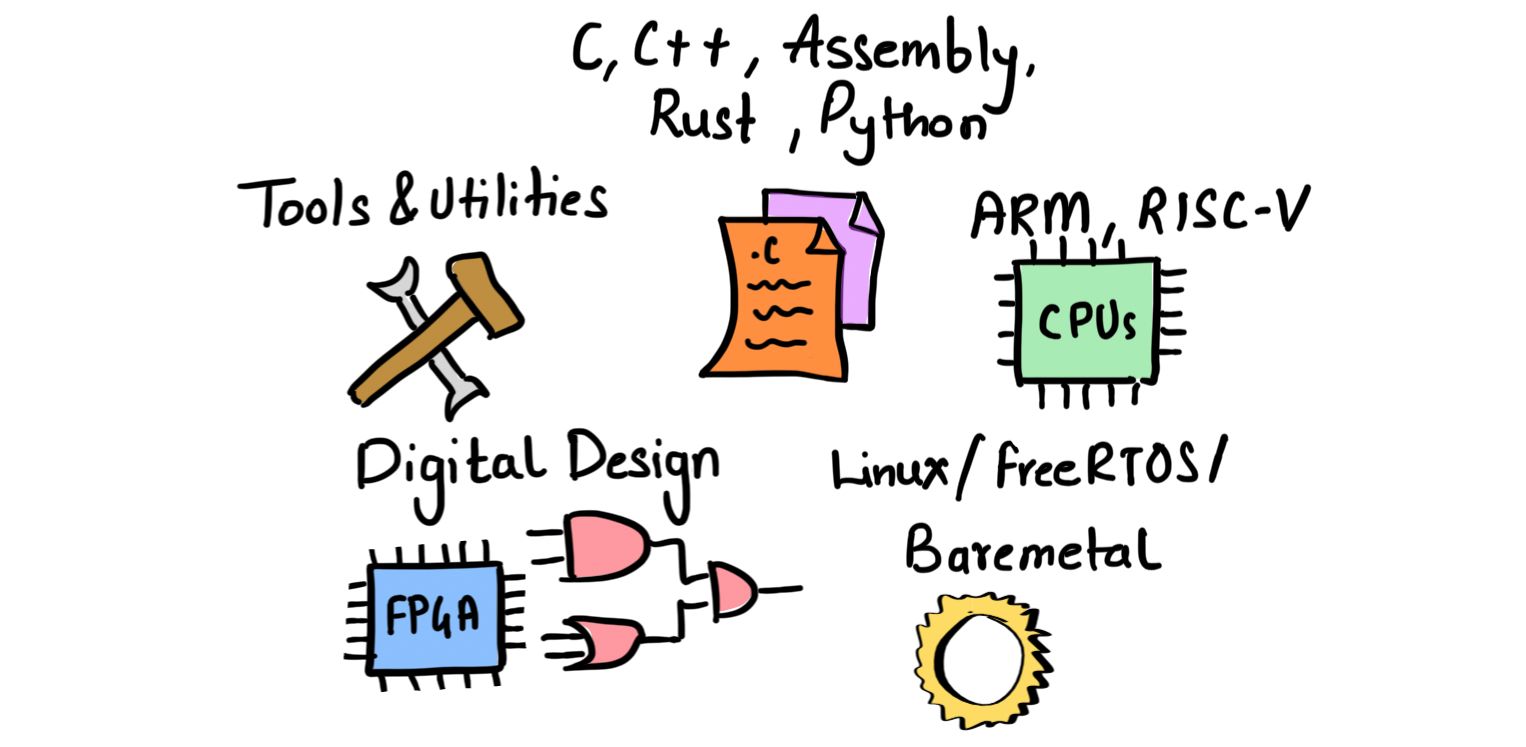 C, C++, Assembly,
Rust, Python
Tools & Utilities
.C
ARM, RISC-V
CPUs
Digital Design
FPGA
Linux/FreeRTOS/
Baremetal